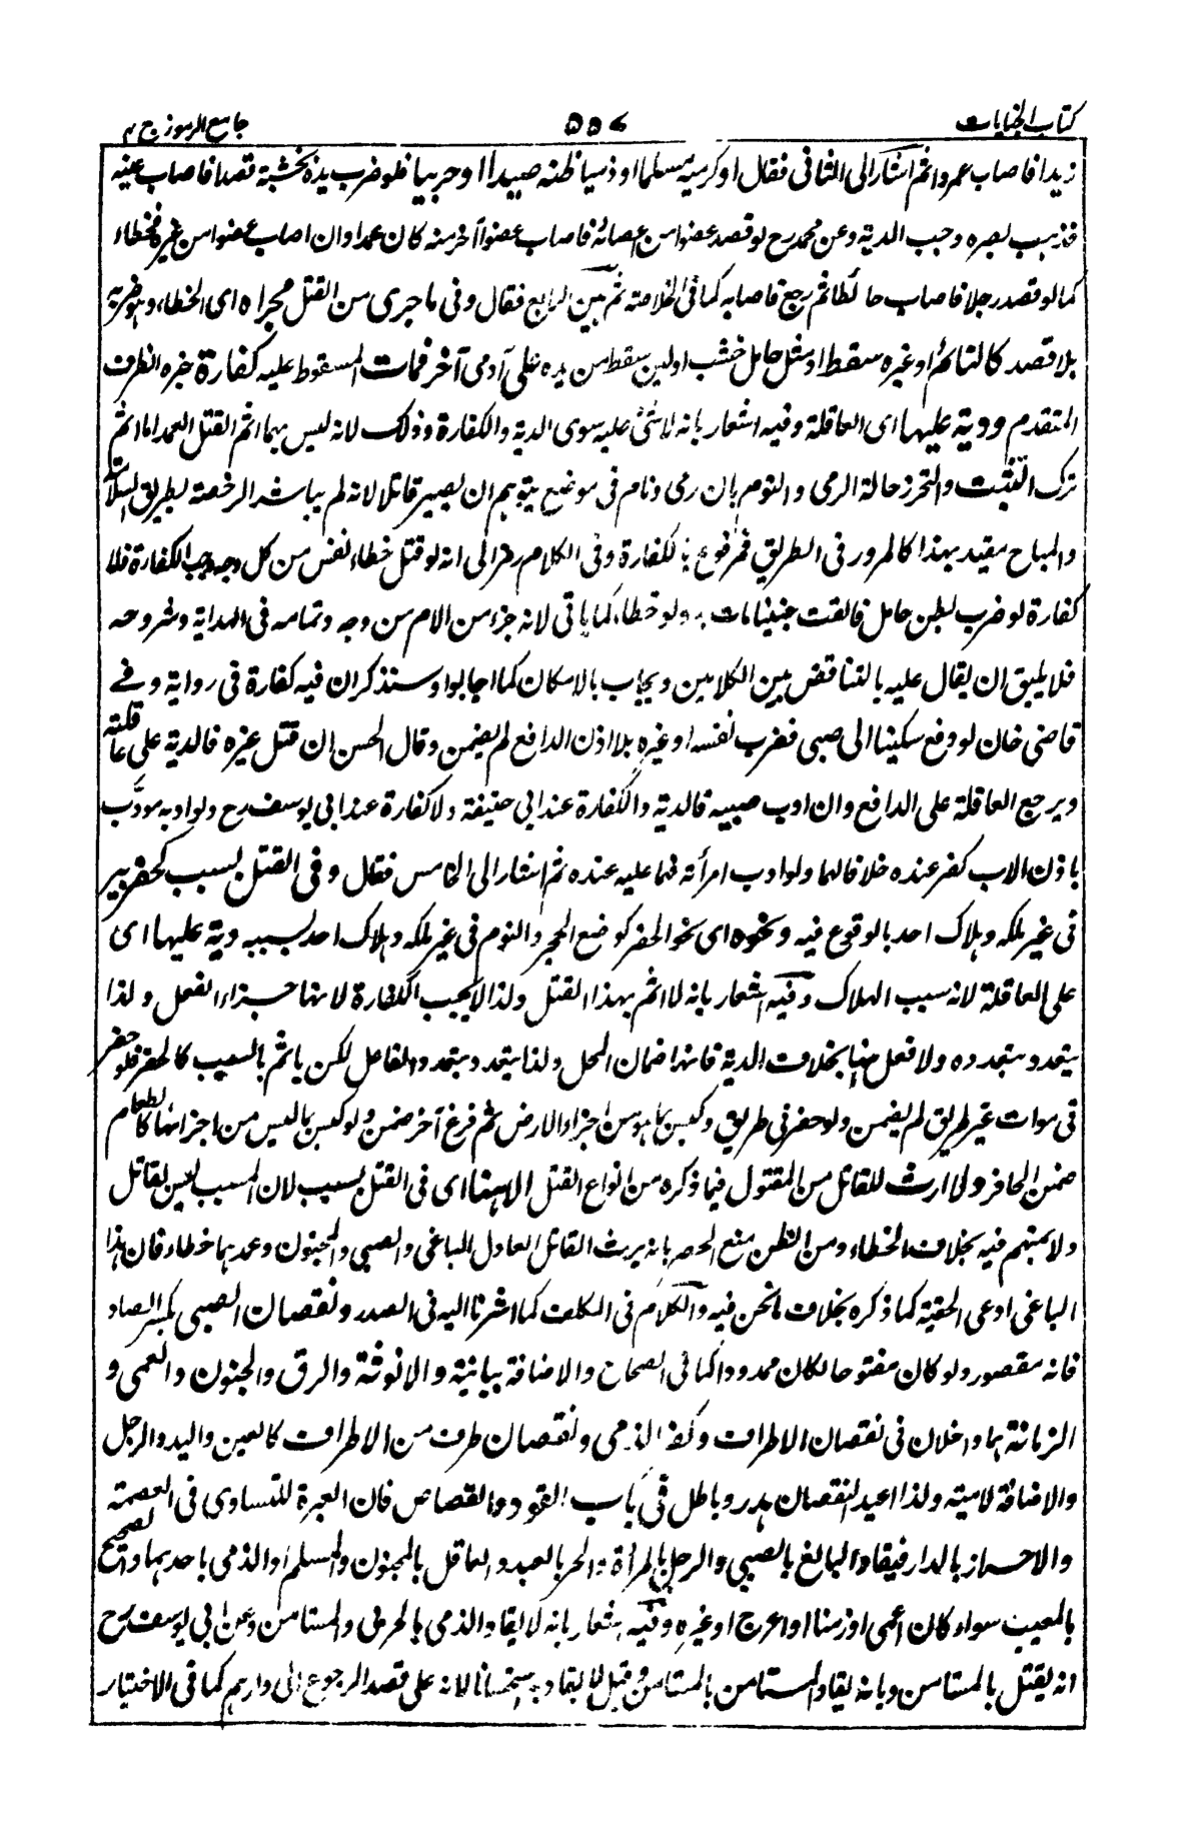 كتاب الجنايات ٥٥٧ جامع الرموز ج ٢
زيدا فاصاب عمروا ثم اشار الى الثانى فقال او كرميه مسلما او ذميا ظنه صيدا او حربيا فلو ضرب يده بخشبة قصدا فاصاب عينه
فذهب بصره وجب الدية وعن محمد رح لو قصد عضوا من اعضائه فاصاب عضوا آخر منه كان عمدا وان اصاب عضوا من غيره فخطاء
كما لو قصد رجلا فاصاب حائطا ثم رجع فاصابه كما فى الخلاصة ثم بين الرابع فقال وفى ما جرى من القتل مجراه اى الخطاء وهو ضربه
بلا قصد كالنائم او غيره سقط او مثل حامل خشب او لبن سقط من يده على آدمى آخر فمات المسقوط عليه كفارة خبره الظرف
المتقدم ودية عليها اى العاقلة وفيه اشعار بانه لا شئ عليه سوى الدية والكفارة وذلك لانه ليس بهما اثم القتل العمد اما اثم
ترك التثبت والتحرز حالة الرمى والنوم بان رمى ونام فى موضع يتوهم ان يصير قاتلا لانه لم يباشر الرخصة بطريق السلامة
والمباح مقيد بهذا كالمرور فى الطريق فمرفوع بالكفارة وفى الكلام رمز الى انه لو قتل خطاء نفس من كل وجه وجب الكفارة فلا
كفارة لو ضرب بطن حامل فالقت جنينا مات به ولو خطاء كما ياتى لانه جزء من الام من وجه وتمامه فى الهداية وشروحه
فلا يليق ان يقال عليه بالتناقض بين الكلامين ويجاب بالامكان كما اجابوا وسنذكر ان فيه كفارة فى رواية وفى
قاضى خان لو دفع سكينا الى صبى فضرب نفسه او غيره بلا اذن الدافع لم يضمن وقال الحسن ان قتل غيره فالدية على عاقلته
ويرجع العاقلة على الدافع وان ادب صبيه فالدية والكفارة عند ابى حنيفة ولا كفارة عند ابى يوسف رح ولو ادبه مودب
باذن الاب كفر عنده خلافا لهما ولو ادب امرأته فما عليه عنده ثم اشار الى الخامس فقال وفى القتل بسبب كحفر بير
فى غير ملكه وهلاك احد بالوقوع فيه ونحوه اى نحو الحفر كوضع الحجر والنوم فى غير ملكه وهلاك احد بسببه دية عليها اى
على العاقلة لانه سبب الهلاك وفيه اشعار بانه لا اثم بهذا القتل ولذا لا يجب الكفارة لانها جزاء الفعل ولذا
يتعدد بتعدده ولا فعل منها بخلاف الدية فانها ضمان المحل ولذا يتعدد بتعدد الفاعل لكن ياثم بالسبب كالحفر فلو حفر
فى موات غير طريق لم يضمن ولو حفر فى طريق وكبس بما هو من اجزاء الارض ثم فرغ آخر ضمن ولو كبس بما ليس من اجزائها كالطعام
ضمن الحافر ولا ارث للقاتل من المقتول فيما ذكره من انواع القتل الا ههنا اى فى القتل بسبب لان المسبب ليس بقاتل
ولا يتهم فيه بخلاف الخطاء ومن الظن منع الحصر بانه يرث القاتل العادل الباغى والصبى والمجنون وعمدهما خطاء فان هذا
الباغى ادعى الحقية كما ذكره بخلاف ما نحن فيه والكلام فى المكلف كما اشرنا اليه فى الصدر ونقصان الصبى بكسر الصاد
فانه مقصور ولو كان مفتوحا لكان ممدودا كما فى الصحاح والاضافة بيانية والانوثة والرق والجنون والعمى و
الزمانة هما داخلان فى نقصان الاطراف وكفر الذمى ونقصان طرف من الاطراف كالعين واليد والرجل
والاضافة لامية ولذا اعيد النقصان هدر وباطل فى باب القود والقصاص فان العبرة للتساوى فى العصمة
والاحراز بالدار فيقاد البالغ بالصبى والرجل بالمرأة والحر بالعبد والعاقل بالمجنون والمسلم او الذمى باحدهما والصحيح
بالمعيب سواء كان اعمى او زمنا او اعرج او غيره وفيه اشعار بانه لا يقاد الذمى بالحربى والمستامن وعن ابى يوسف رح
انه يقتل بالمستامن وبانه يقاد المستامن بالمستامن وقيل لا يقاد به استحسانا لانه على قصد الرجوع الى دارهم كما فى الاختيار